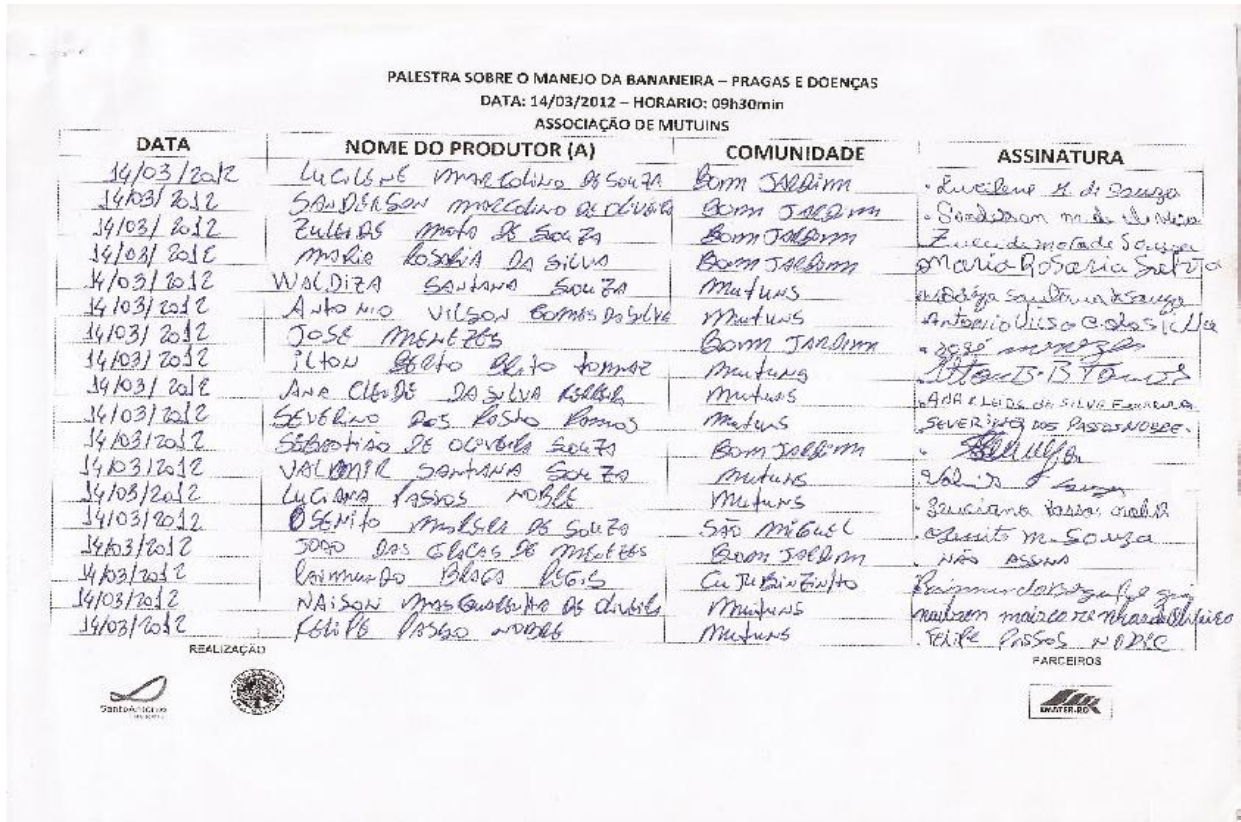 PALESTRA SOBRE O MANEJO DA BANANEIRA – PRAGAS E DOENÇAS
DATA: 14/03/2012 – HORARIO: 09h30min
ASSOCIAÇÃO DE MUTUINS
DATA NOME DO PRODUTOR (A) COMUNIDADE ASSINATURA
14/03/2012 LUCILENE MARCOLINO DE SOUZA BOM JARDIM Lucilene M. de Souza
14/03/2012 SANDERSON MARCOLINO DE OLIVEIRA BOM JARDIM Sanderson m. de
14/03/2012 ZULEIDE MOTA DE SOUZA BOM JARDIM Zuleide mota de Souza
14/03/2012 MARIA ROSARIA DA SILVA BOM JARDIM Maria Rosaria
14/03/2012 WALDIZA SANTANA SOUZA MUTUNS
14/03/2012 ANTONIO VILSON GOMES DA SILVA MUTUNS Antonio
14/03/2012 JOSÉ MENEZES BOM JARDIM José menezes
14/03/2012 ILTON BRITO TOMAZ MUTUNS
14/03/2012 ANA CLEIDE DA SILVA FERREIRA MUTUNS ANA KLEIDE DA SILVA FERREIRA
14/03/2012 SEVERINO DOS RAMOS MUTUNS SEVERINO DOS PASSOS NOBRE.
14/03/2012 SEBASTIÃO DE OLIVEIRA SOUZA BOM JARDIM
14/03/2012 VALDMIR SANTANA SOUZA MUTUNS
14/03/2012 LUCIANA PASSOS NOBRE MUTUNS Luciana Passos
14/03/2012 OSENITO MOREIRA DE SOUZA SÃO MIGUEL Osenito M. Souza
14/03/2012 JOÃO DAS GRAÇAS DE MENEZES BOM JARDIM NÃO ASSINA
14/03/2012 RAIMUNDO BRAGA REGIS CUJUBINZINHO
14/03/2012 NAISON MASCARENHAS DE OLIVEIRA MUTUNS
14/03/2012 FELIPE PASSO NOBRE MUTUNS FELIPE PASSOS
REALIZAÇÃO PARCEIROS
Santo Antônio EMATER-RO